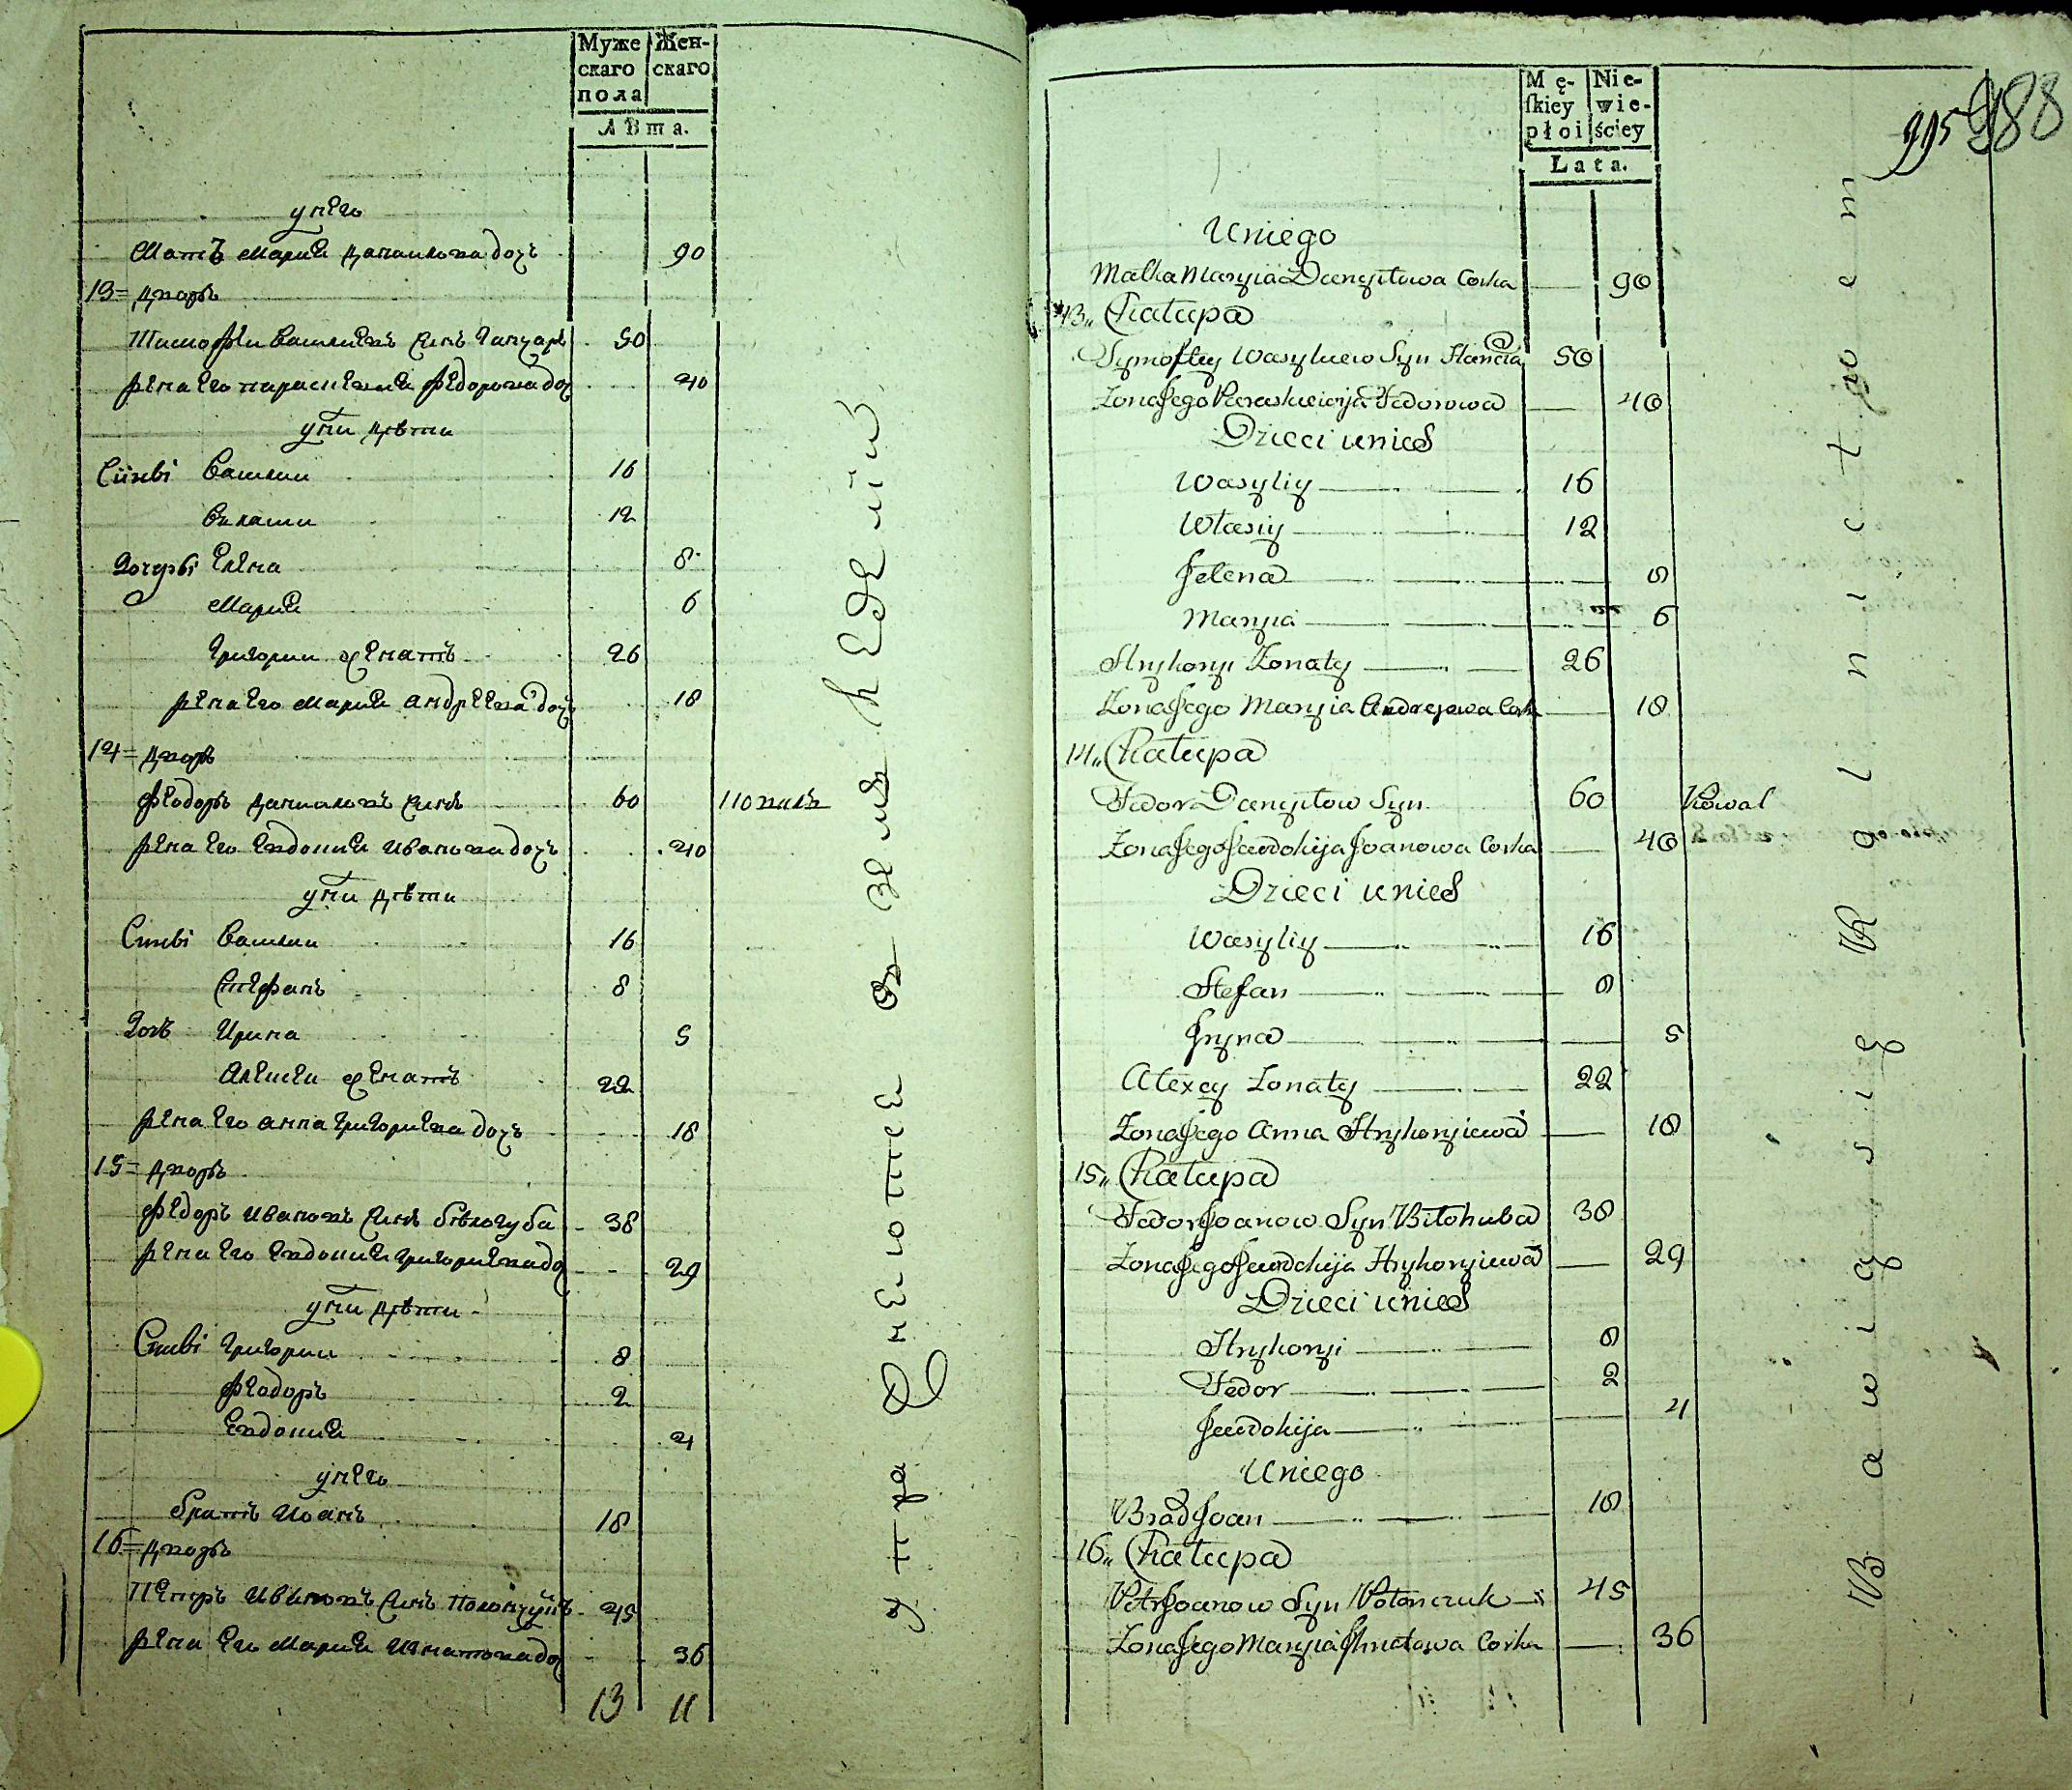 Муже Жен-
скаго скаго
пола
Лѣта.
у него
Мать Мария Данилова дочь 90
13 = дворъ
Тимофѣи Васильевъ сынъ Ганчаръ 50
жена его Параскевия Федорова доч 40
у них дѣти
Синві Василии 16
Власии 12
Дочерьві Елена 8
Мария 6
Григории женатъ 26
жена его Мария Андреева дочь 18
14 = дворъ
Феодоръ Данииловъ сынъ 60 коваль
жена его Евдокия Иванова дочь 40
у них дѣти
Синві Василии 16
Стефанъ 8
Дочъ Ирина 5
Алексеи женатъ 22
жена его Анна Григориева дочь 18
15 = дворъ
Федоръ Ивановъ сынъ Бѣлогуба 38
жена его Евдокия Григориева доч 29
у них дѣти
Синві Григории 8
Феодоръ 2
Евдокия 4
у него
братъ Иоанъ 18
16 = дворъ
Петръ Ивановъ сынъ 45
жена его Мария Игнатова доч 36
13 11
Упражнеютсе въ земледелии
Mę- Nie-
skiey wie-
płoi ściey
Lata.
995 988
Uniego
Matka Maryia Danyłowa Corka 90
13,, Chałupa
Tymoftey Wasylwew Syn Hancza 50
Zona Jego Paraskiewija Fedorowa 40
Dzieci unich
Wasyliy 16
Własiy 12
Jelena 8
Maryia 6
Hryhoryi Zonaty 26
Zona Jego Maryia Andrejewa Corka 18
14,, Chałupa
Fedor Danyłow Syn 60 Kowal
Zona Jego Jewdokija Joanowa Corka 40
Dzieci unich
Wasyliy 16
Stefan 8
Jryna 5
Alexey Zonaty 22
Zona Jego Anna Hryhoryiewa 18
15,, Chałupa
Fedor Joanow Syn Biłohuba 38
Zona Jego Jewdokija Hryhoryiewa 29
Dzieci unich
Hryhoryi 8
Fedor 2
Jewdokija 4
Uniego
Brad Joan 18
16,, Chałupa
Petr Joanow Syn Połonczuk 45
Zona Jego Maryia Jhnatowa Corka 36
Bawią się Rolnictwem